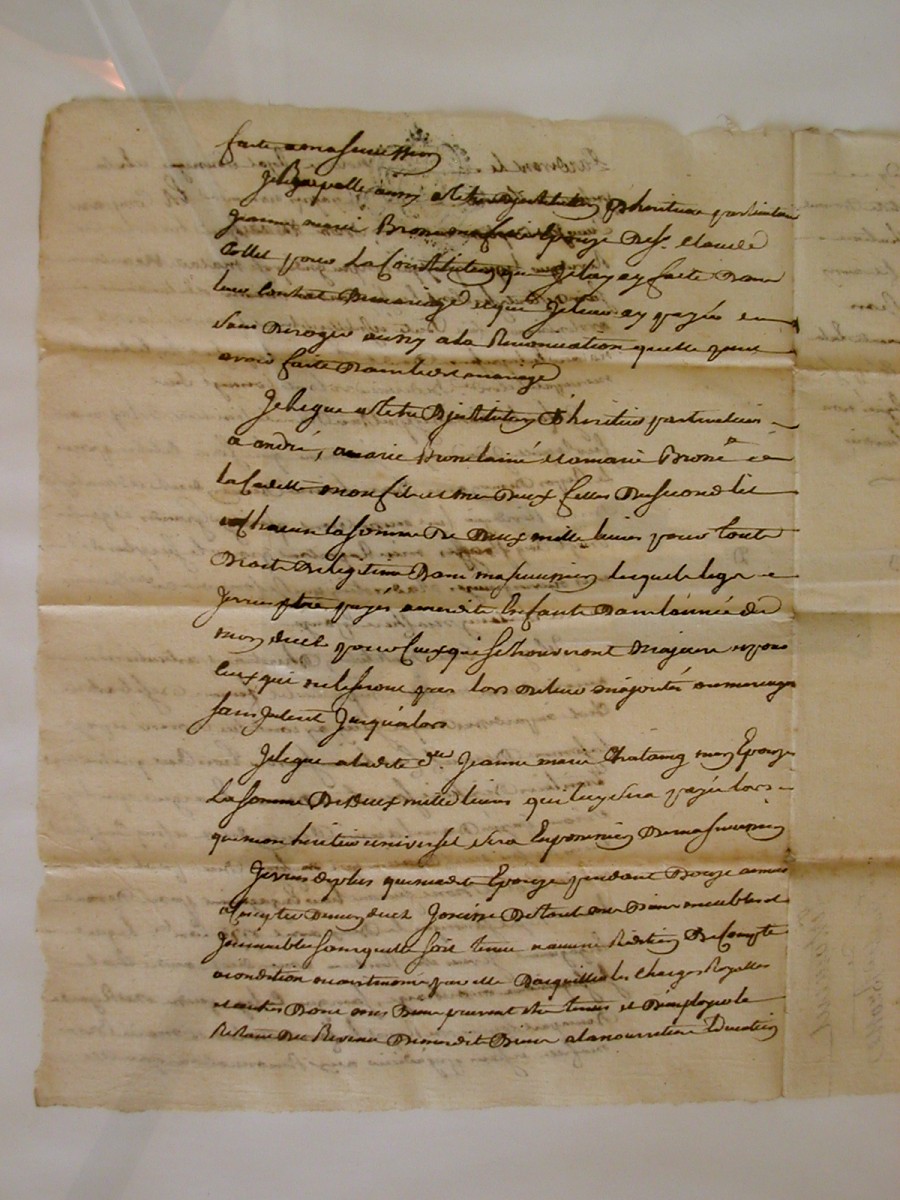 faite a ma succession
Je legue aussy a titre d'jnstitution d'heritiere particuliere
Jeanne marie Brosse ma fille Epouse de sr. Claude
Collet pour La Constitution que Je luy ay faite Dans
leur Contrat De mariage et que Je leur ay payée
Sans Deroger aussy a la Renonciation quelle peut
avoir faite Dans ledit mariage
Je legue a titre d'jnstitution d'heritiers particuliers
a andré, a marie Brosse lainée et a marie Brosse
la Cadette mon fils et mes Deux filles Du second lit
a Chacun la somme De Deux mille livres pour tout
Droits De legitime Dans ma succession lesquels legs
Je veux Etre payés a mesdits Enfants Dans lannée de
mon decès pour Ceux qui se trouveront majeurs et pour
Ceux qui ne le seront pas lors de leur majorité ou mariage
sans jnterêt Jusqu'alors
Je legue a ladite dlle Jeanne marie Chataing mon Epouse
La somme De Deux mille livres qui luy sera payée lors
que mon heritier universel sera En possession De ma succession
Je veux de plus que madite Epouse pendant Douze années
a Compter De mon decès Jouisse De tout mes Biens meubles et
Jmmeubles sans quelle soit tenue a aucune Reddition De Compte
a condition neantmoins quelle Dacquittera les Charges Royalles
et autres Dont mes Biens peuvent etre tenus et D'employer le
Restant Des Revenus De mesdits Biens a la nourriture Education